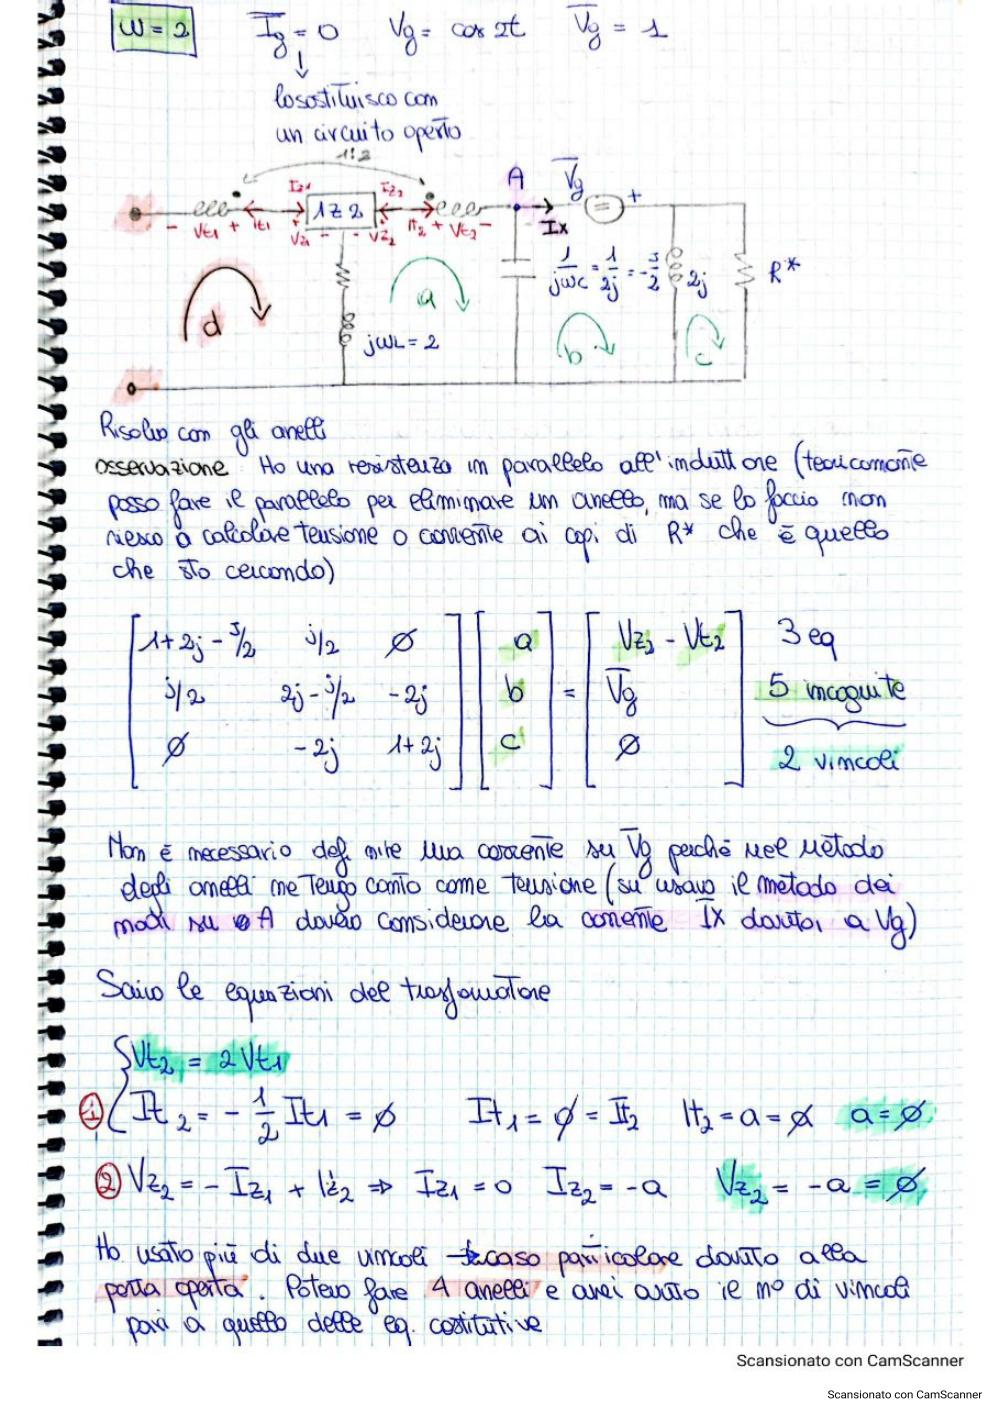 W = 2 Ig = 0 Vg = cos 2t Vg = 1
lo sostituisco con
un circuito aperto
1:2
A Vg
Iz1 Iz2 +
1Z2
- Vt1 + It1 Vz1 - - Vz2 It2 + Vt2 - Ix
1/jωC = 1/2j = -j/2 2j R*
d a
jωL = 2 b c
Risolvo con gli anelli
osservazione: Ho una resistenza in parallelo all'induttore (teoricamente
posso fare il parallelo per eliminare un anello, ma se lo faccio non
riesco a calcolare tensione o corrente ai capi di R* che è quello
che sto cercando)
1+2j-j/2 j/2 ∅ a Vz2 - Vt2 3 eq
j/2 2j-j/2 -2j b = Vg 5 incognite
∅ -2j 1+2j c ∅ 2 vincoli
Non è necessario definire una corrente su Vg perché nel metodo
degli anelli ne tengo conto come tensione (su usavo il metodo dei
nodi su A dovevo considerare la corrente Ix dovuta a Vg)
Scrivo le equazioni del trasformatore
Vt2 = 2 Vt1
1 It2 = - 1/2 It1 = ∅ It1 = ∅ = It2 It2 = a = ∅ a = ∅
2 Vz2 = - Iz1 + Iz2 ⇒ Iz1 = 0 Iz2 = -a Vz2 = -a = ∅
Ho usato più di due vincoli → caso particolare dovuto alla
porta aperta. Potevo fare 4 anelli e avrei avuto il n° di vincoli
pari a quello delle eq. costitutive
Scansionato con CamScanner
Scansionato con CamScanner